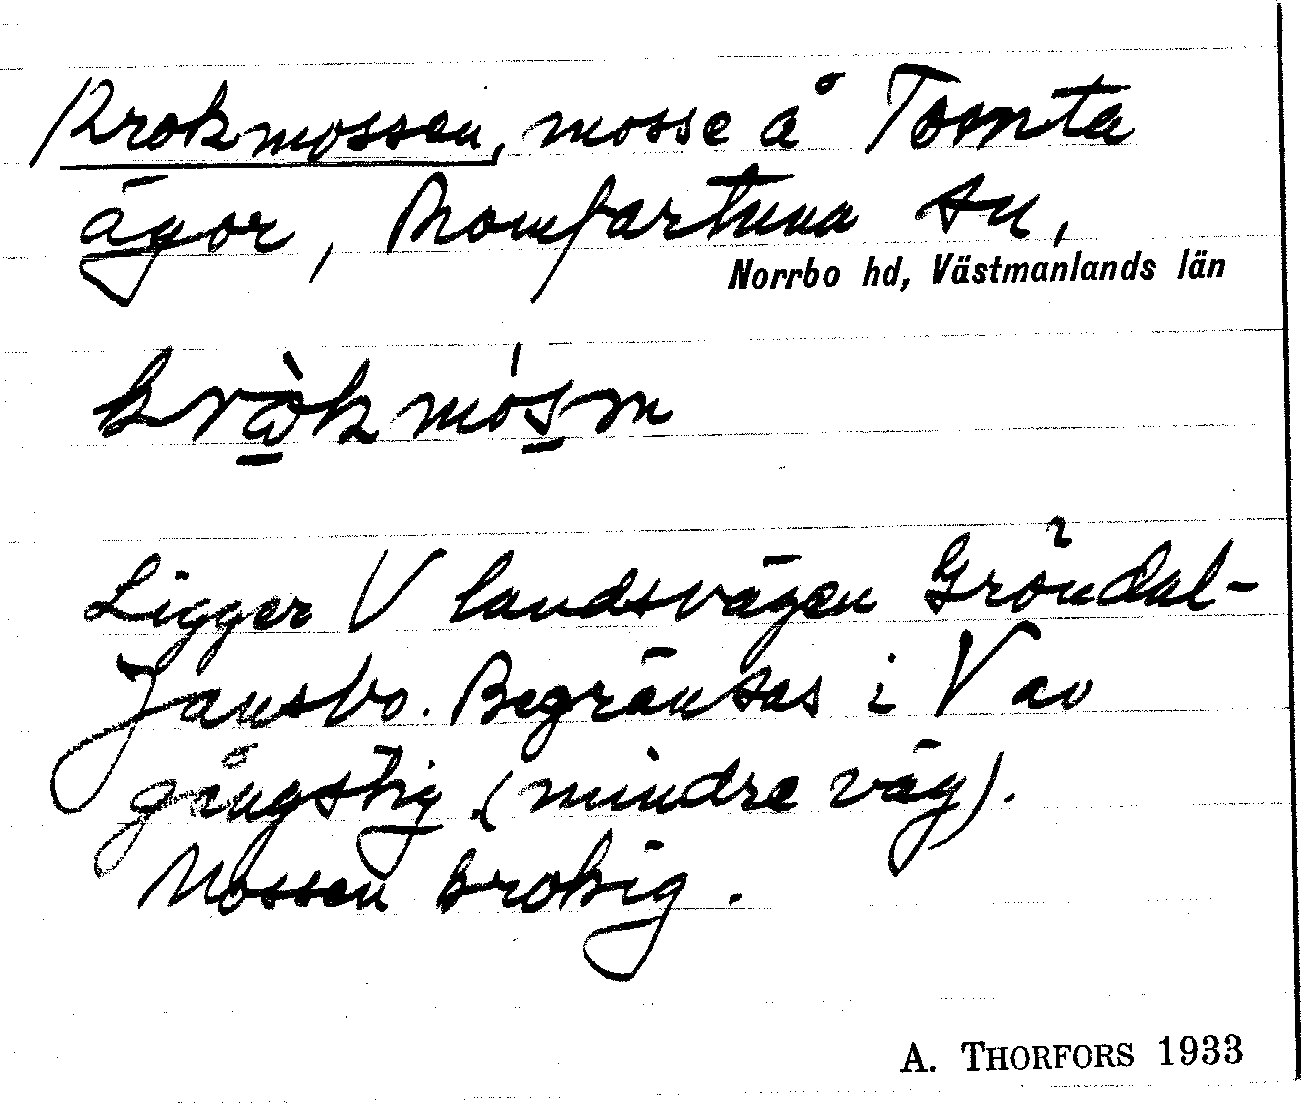 Krokmossen, mosse å Tomta
ägor, Romfartuna sn,
Norrbo hd, Västmanlands län
Ligger V landsvägen Gröndal-
Jansbo. Begränsas i V av
gångstig (mindre väg).
Mossen krokig.
A. THORFORS 1933